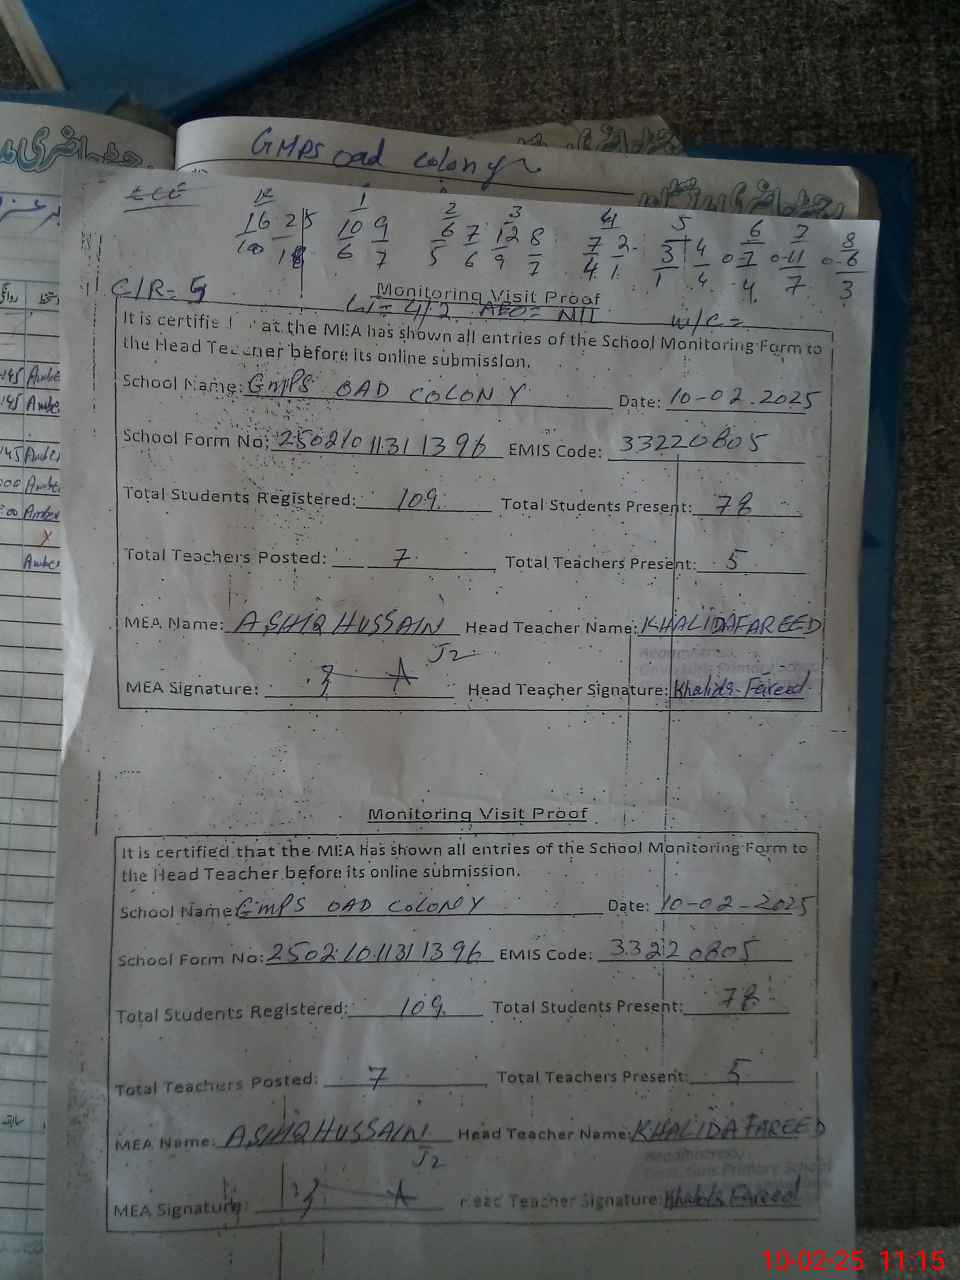 GMPS oad colony
ECE K 1 2 3 4 5 6 7 8
16 25 10 9 6 7 12 8 7 2 3 4 0 7 0 11 0 6
6 7 5 6 9 7 4 1 1 4 4 7 3
C/R= 5
Monitoring Visit Proof
AEO= Nil w/c=
It is certifie at the MEA has shown all entries of the School Monitoring Form to
the Head Teacher before its online submission.
School Name: GMPS OAD COLONY Date: 10-02-2025
School Form No: 2502101131 1396 EMIS Code: 33220805
Total Students Registered: 109 Total Students Present: 78
Total Teachers Posted: 7 Total Teachers Present: 5
MEA Name: ASHIQ HUSSAIN Head Teacher Name: KHALIDA FAREED
J2
MEA Signature: Head Teacher Signature: Khalida Fareed
Monitoring Visit Proof
It is certified that the MEA has shown all entries of the School Monitoring Form to
the Head Teacher before its online submission.
School Name GMPS OAD COLONY Date: 10-02-2025
School Form No: 2502101131 1396 EMIS Code: 33220805
Total Students Registered: 109 Total Students Present: 78
Total Teachers Posted: 7 Total Teachers Present: 5
MEA Name: ASHIQ HUSSAIN Head Teacher Name: KHALIDA FAREED
J2
MEA Signature: Head Teacher Signature: Khalida Fareed
10-02-25 11:15